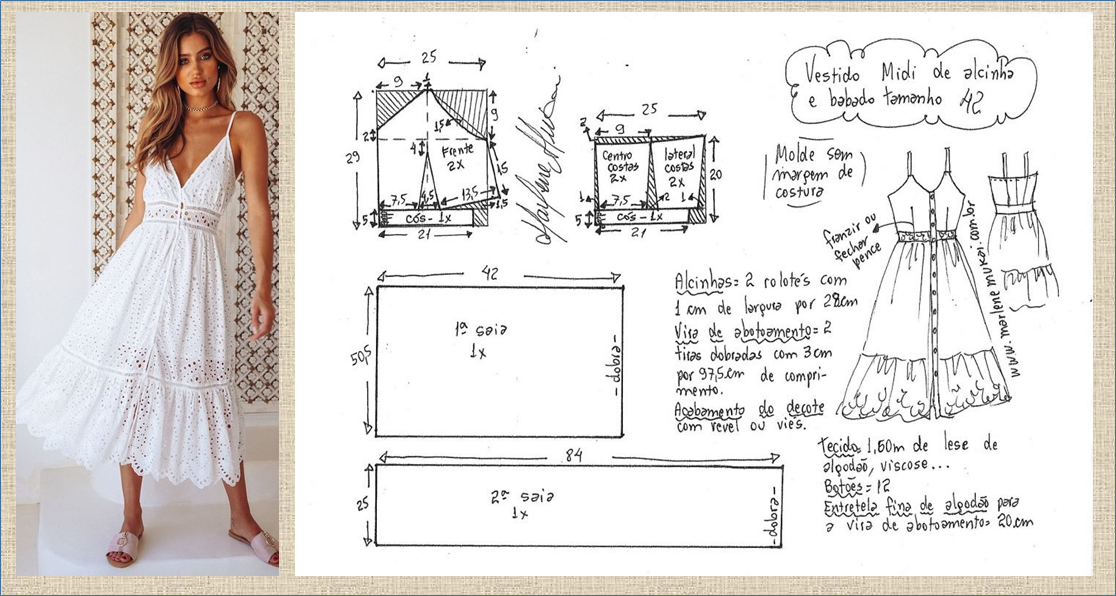 Vestido Midi de alcinha
e babado tamanho 42
Molde sem
margem de
costura
25
9
1
9
29
2
1,5
4
Frente
2x
1,5
7,5
4,5
13,5
1,5
5
cós - 1x
21
25
2
9
Centro
costas
2x
lateral
costas
2x
20
1
7,5
2
1
5
cós - 1x
21
franzir ou
fechar
pence
42
50,5
1ª saia
1x
- dobra -
84
25
2ª saia
1x
- dobra -
Alcinhas = 2 rolotês com
1 cm de largura por 28cm
Vira de abotoamento = 2
tiras dobradas com 3 cm
por 97,5cm de compri-
mento.
Acabamento do decote
com revel ou viés.
Tecido: 1,50m de lese de
algodão, viscose...
Botões = 12
Entretela fina de algodão para
a vira de abotoamento = 20cm
www.marlenemukai.com.br